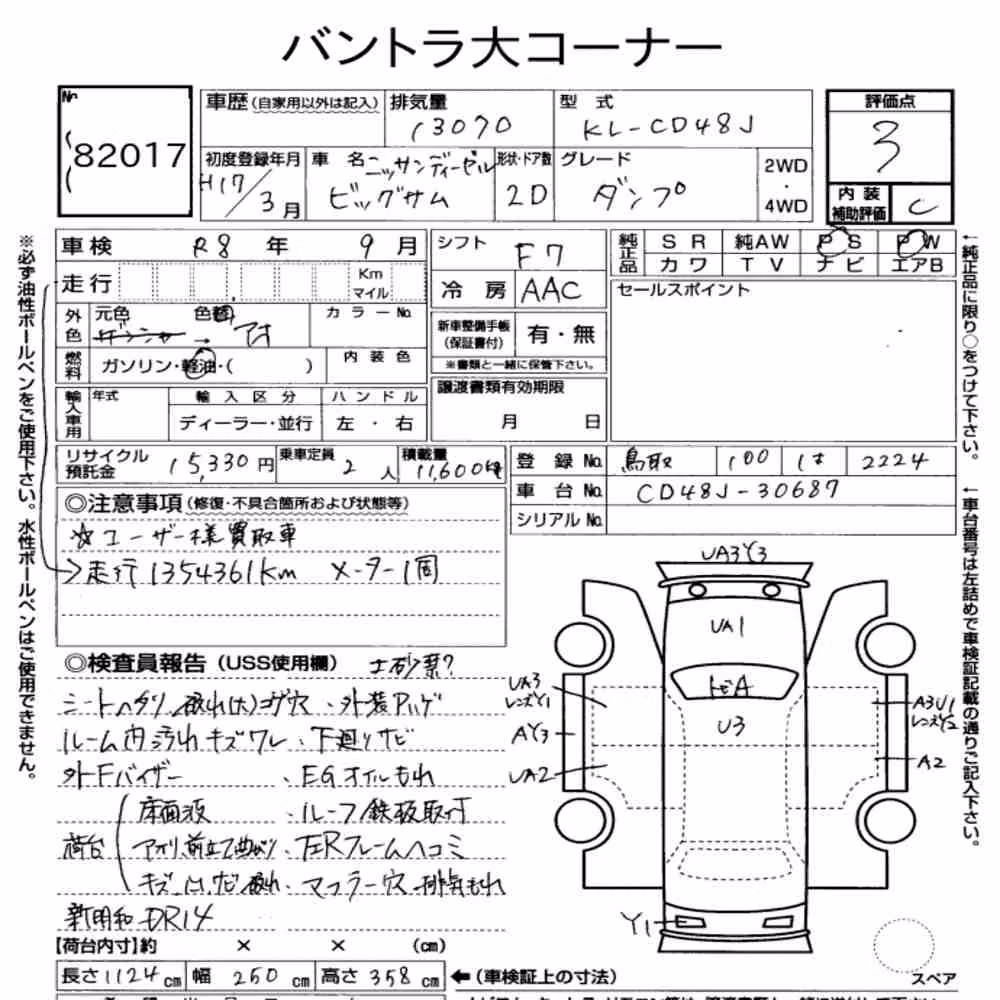 バントラ大コーナー
No. 82017
車歴 (自家用以外は記入) 排気量 13070 型式 KL-CD48J
評価点 3
初度登録年月 H17/3月 車名 ニッサンディーゼル ビッグサム 形状・ドア数 2D グレード ダンプ 2WD・4WD
内装補助評価 C
車検 R8年 9月 シフト F7
純正品 SR 純AW PS PW
カワ TV ナビ エアB
走行 Km マイル
冷房 AAC
セールスポイント
外色 元色 色替 → アオ カラーNo.
新車整備手帳(保証書付) 有・無
※書類と一緒に保管下さい。
燃料 ガソリン・軽油・( ) 内装色
譲渡書類有効期限
月 日
輸入車用 年式 輸入区分 ハンドル
ディーラー・並行 左・右
リサイクル預託金 15,330円 乗車定員 2人 積載量 11,600kg
登録No. 鳥取 100 は 2224
車台No. CD48J-30687
シリアルNo.
◎注意事項(修復・不具合箇所および状態等)
☆ユーザー様買取車
→走行1354361Km メーター1固
◎検査員報告(USS使用欄) 土砂禁?
シートヘタリ 破れ(大)コゲ穴・外装サビ
ルーム内汚れキズワレ・下廻りサビ
外Fバイザー ・EGオイルもれ
荷台 床面凹 ・ルーフ鉄板取付
アオリ前立て曲がり・左Rフレームヘコミ
キズ凹サビ破れ・マフラー穴排気もれ
新明和DR14
【荷台内寸】約 × × (cm)
長さ1124cm 幅250cm 高さ358cm ←(車検証上の寸法)
UA3Y3
UA1
トビA
U3
UA3
レンズY1
AY3
UA2
A3U1
レンズY2
A2
Y1
スペア
※必ず油性ボールペンをご使用下さい。水性ボールペンはご使用できません。
←純正品に限り○をつけて下さい。
←車台番号は左詰めで車検証記載の通りご記入下さい。